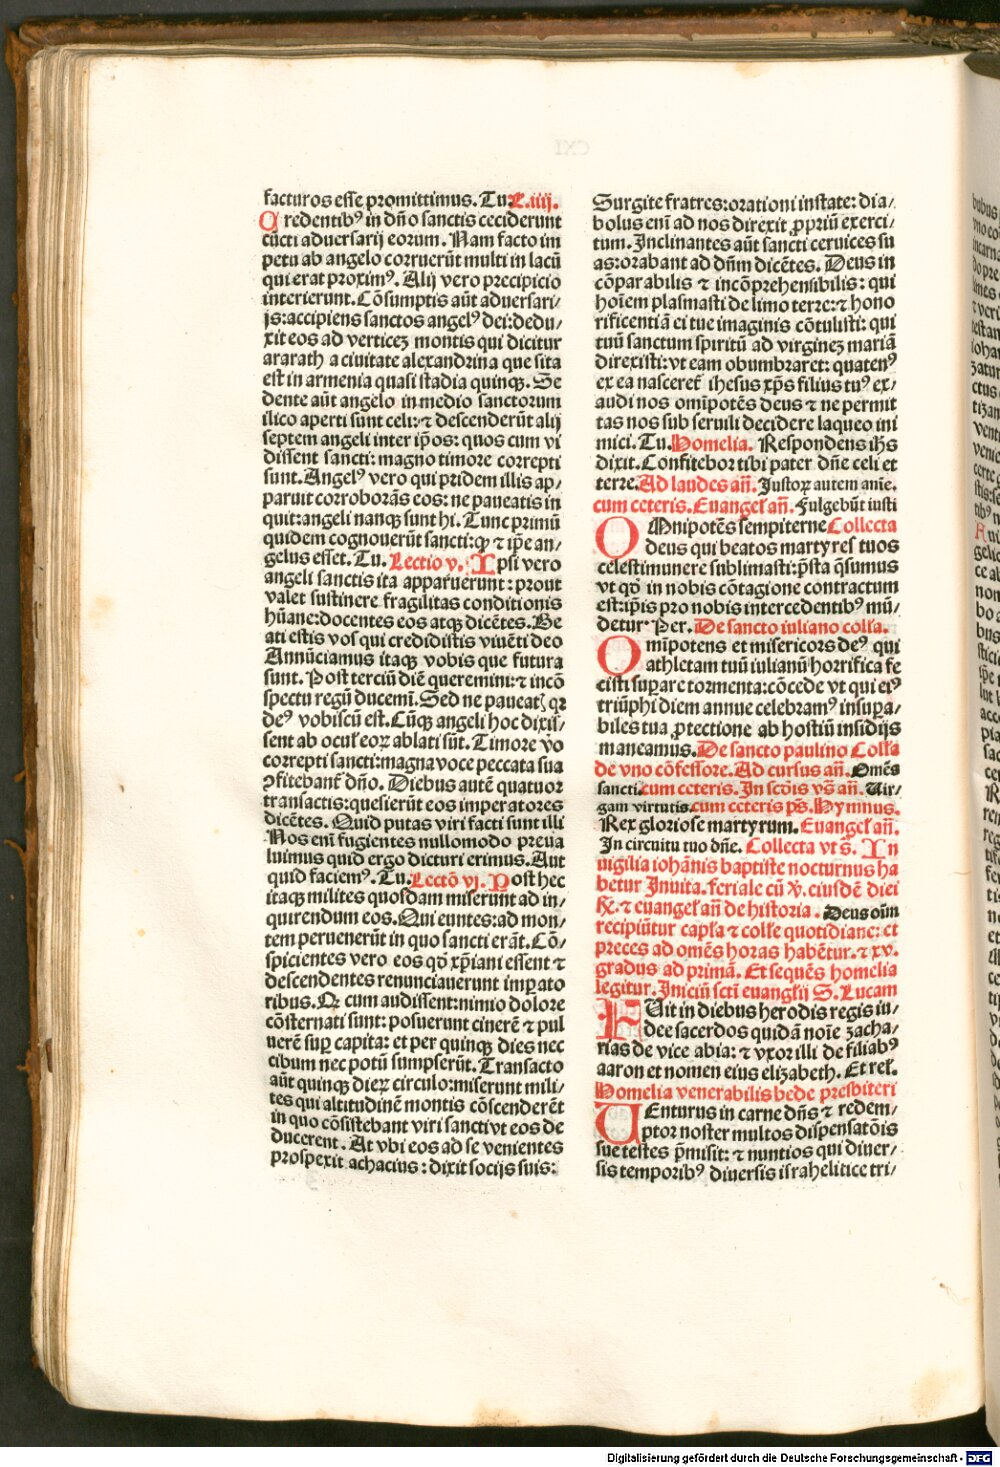 facturos esse promittimus. Tu. L. iiij.
Credentibꝰ in dño sanctis ceciderunt
cūcti aduersarij eorum. Nam facto im
petu ab angelo corruerūt multi in lacū
qui erat proximꝰ. Alij vero precipicio
interierunt. Cōsumptis aūt aduersari/
js: accipiens sanctos angelꝰ dei: dedu/
xit eos ad verticeꝫ montis qui dicitur
ararath a ciuitate alexandrina que sita
est in armenia quasi stadia quinqꝫ. Se
dente aūt angelo in medio sanctorum
ilico aperti sunt celi: ⁊ descenderūt alij
septem angeli inter ip̄os: quos cum vi
dissent sancti: magno timore correpti
sunt. Angelꝰ vero qui pridem illis ap/
paruit corroborās eos: ne paueatis in
quit: angeli nanqꝫ sunt hi. Tunc primū
quidem cognouerūt sancti: ꝙ ⁊ ip̄e an/
gelus esset. Tu. Lectio v. Ipsi vero
angeli sanctis ita apparuerunt: prout
valet sustinere fragilitas conditionis
hūane: docentes eos atqꝫ dicētes. Be
ati estis vos qui credidistis viuēti deo
Annūciamus itaqꝫ vobis que futura
sunt. Post terciū diē queremini: ⁊ incō
spectu regū ducemī. Sed ne paueatꝭ qꝛ
deꝰ vobiscū est. Cūqꝫ angeli hoc dixis/
sent ab ocul̓ eoꝝ ablati sūt. Timore v̄o
correpti sancti: magna voce peccata sua
ꝯfitebant̄ dño. Diebus autē quatuor
transactis: quesierūt eos imperatores
dicētes. Quid putas viri facti sunt illi
Nos enī fugientes nullomodo preua
luimus quid ergo dicturi erimus. Aut
quid faciemꝰ. Tu. Lectō vj. Post hec
itaqꝫ milites quosdam miserunt ad in/
quirendum eos. Qui euntes: ad mon/
tem peruenerūt in quo sancti erāt. Cō/
spicientes vero eos qd̄ xp̄iani essent ⁊
descendentes renunciauerunt imꝑato
ribus. Qꝫ cum audissent: nimio dolore
cōsternati sunt: posuerunt cinerē ⁊ pul
uerē suꝑ capita: et per quinqꝫ dies nec
cibum nec potū sumpserūt. Transacto
aūt quinqꝫ dieꝝ circulo: miserunt mili/
tes qui altitudinē montis cōscenderēt
in quo cōsistebant viri sancti vt eos de
ducerent. At vbi eos ad se venientes
prospexit achacius: dixit socijs suis:
Surgite fratres: orationi instate: dia/
bolus enī ad nos direxit ꝓpriū exerci/
tum. Inclinantes aūt sancti ceruices su
as: orabant ad dñm dicētes. Deus in
cōparabilis ⁊ incōprehensibilis: qui
hoīem plasmasti de limo terre: ⁊ hono
rificentiā ei tue imaginis cōtulisti: qui
tuū sanctum spiritū ad virgineꝫ mariā
direxisti: vt eam obumbraret: quatenꝰ
ex ea nasceret̄ ihesus xp̄s filius tuꝰ ex/
audi nos omīpotēs deus ⁊ ne permit
tas nos sub seruili decidere laqueo ini
mici. Tu. Homelia. Respondens ih̄s
dixit. Confitebor tibi pater dñe celi et
terre. Ad laudes añ. Iustoꝝ autem anīe.
cum ceteris. Euangel̓ añ. Fulgebūt iusti
OMnipotēs sempiterne Collecta
deus qui beatos martyres tuos
celesti munere sublimasti: p̄sta q̄sumus
vt qd̄ in nobis cōtagione contractum
est: ip̄is pro nobis intercedentibꝰ mū/
detur. Per. De sancto iuliano coll̓a.
Omīpotens et misericors deꝰ qui
athletam tuū iulianū horrifica fe
cisti suꝑare tormenta: cōcede vt qui eiꝰ
triūphi diem annue celebramꝰ insuꝑa/
biles tua ꝓtectione ab hostiū insidijs
maneamus. De sancto paulino Coll̓a
de vno cōfessore. Ad cursus añ. Omēs
sancti. cum ceteris. In scd̓is vs̄ añ. Uir/
gam virtutis. cum ceteris ps̄. Hymnus.
Rex gloriose martyrum. Euangel̓ añ.
In circuitu tuo dñe. Collecta vt s̄. In
uigilia iohānis baptiste nocturnus ha
betur Inuita. feriale cū v̄. eiusdē diei
℟. ⁊ euangel̓ añ de historia. Deus oīm
recipiūtur capl̓a ⁊ coll̓e quotidiane: et
preces ad omēs horas habētur. ⁊ xv.
gradus ad primā. Et sequēs homelia
legitur. Iniciū scti euangl̓ij S. Lucam
FUit in diebus herodis regis iu/
dee sacerdos quidā noīe zacha/
rias de vice abia: ⁊ vxor illi de filiabꝰ
aaron et nomen eius elizabeth. Et rel̓.
Homelia venerabilis bede presbiteri
UEnturus in carne dñs ⁊ redem/
ptor noster multos dispensatōis
sue testes p̄misit: ⁊ nuntios qui diuer/
sis temporibꝰ diuersis israhelitice tri/
Digitalisierung gefördert durch die Deutsche Forschungsgemeinschaft - DFG